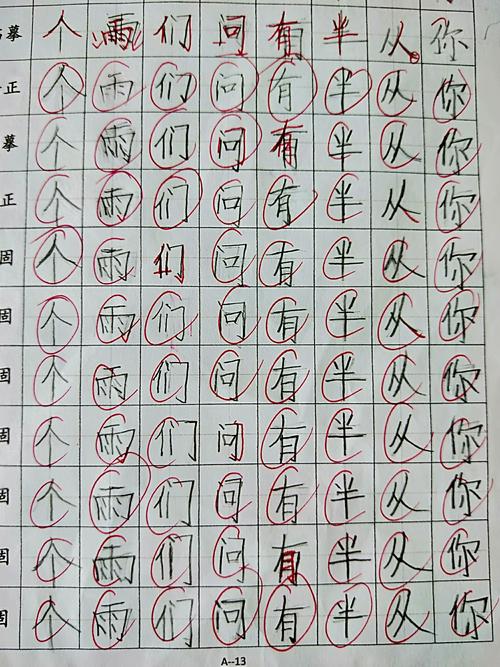 摹 个 雨 们 问 有 半 从 你
正 个 雨 们 问 有 半 从 你
摹 个 雨 们 问 有 半 从 你
正 个 雨 们 问 有 半 从 你
固 个 雨 们 问 有 半 从 你
固 个 雨 们 问 有 半 从 你
固 个 雨 们 问 有 半 从 你
固 个 雨 们 问 有 半 从 你
固 个 雨 们 问 有 半 从 你
固 个 雨 们 问 有 半 从 你
固 个 雨 们 问 有 半 从 你
A--13